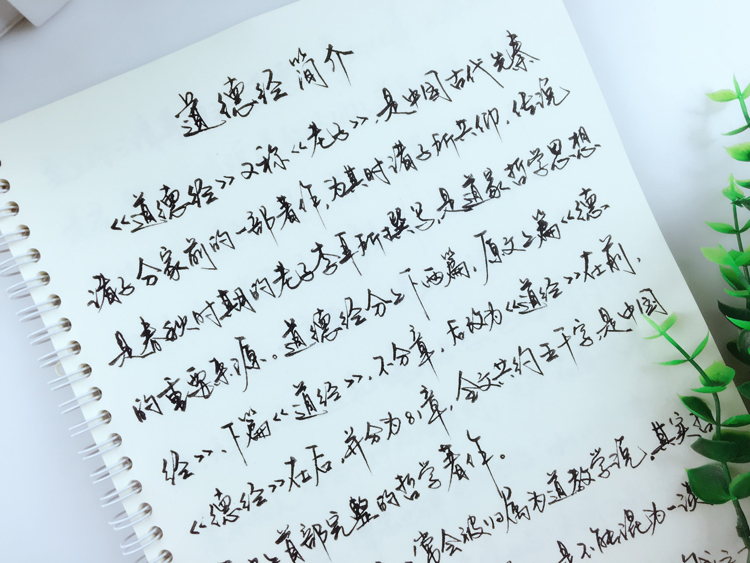 道德经简介
《道德经》又称《老子》是中国古代先秦
诸子分家前的一部著作,为其时诸子所共仰,传说
是春秋时期的老子李耳所撰写,是道家哲学思想
的重要来源。道德经分上下两篇,原文上篇《德
经》、下篇《道经》,不分章,后改为《道经》在前,
《德经》在后,并分为81章,全文共约五千字,是中国
首部完整的哲学著作。
常会被归属为道教学说。其实
是不能混为一谈